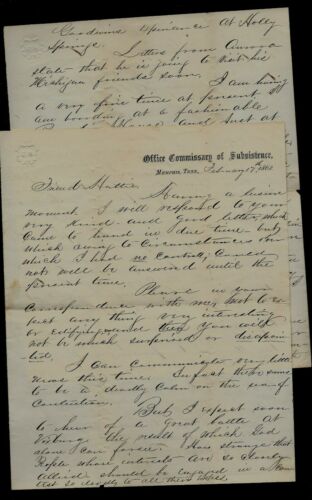 Goodwins experience At Holly
Springs. Letters from Aurora
state that he is going to visit his
Michigan friends soon. I am having
a very fine time at present I
am boarding at a fashionable
House and Just at
Office Commissary of Subsistence,
Memphis, Tenn., February 17th 1863
Friend Hattie
Having a leisure
moment I will respond to your
very kind and good letter which
came to hand in due time but
which owing to circumstances over
which I had no control could
not well be answered until the
present time.
Please in your
correspondence with me not to ex-
pect any thing very interesting
or edifying and then you will
not be much surprised or disappoin-
ted.
I can communicate very little
news this time. In fact there seems
to be a deathly calm on the sea of
Contention.
But I expect soon
to hear of a great battle at
Vicksburg the result of which God
alone can foresee. How strange that
People whose interests are so closely
Allied should be engaged in a
so deadly to all their